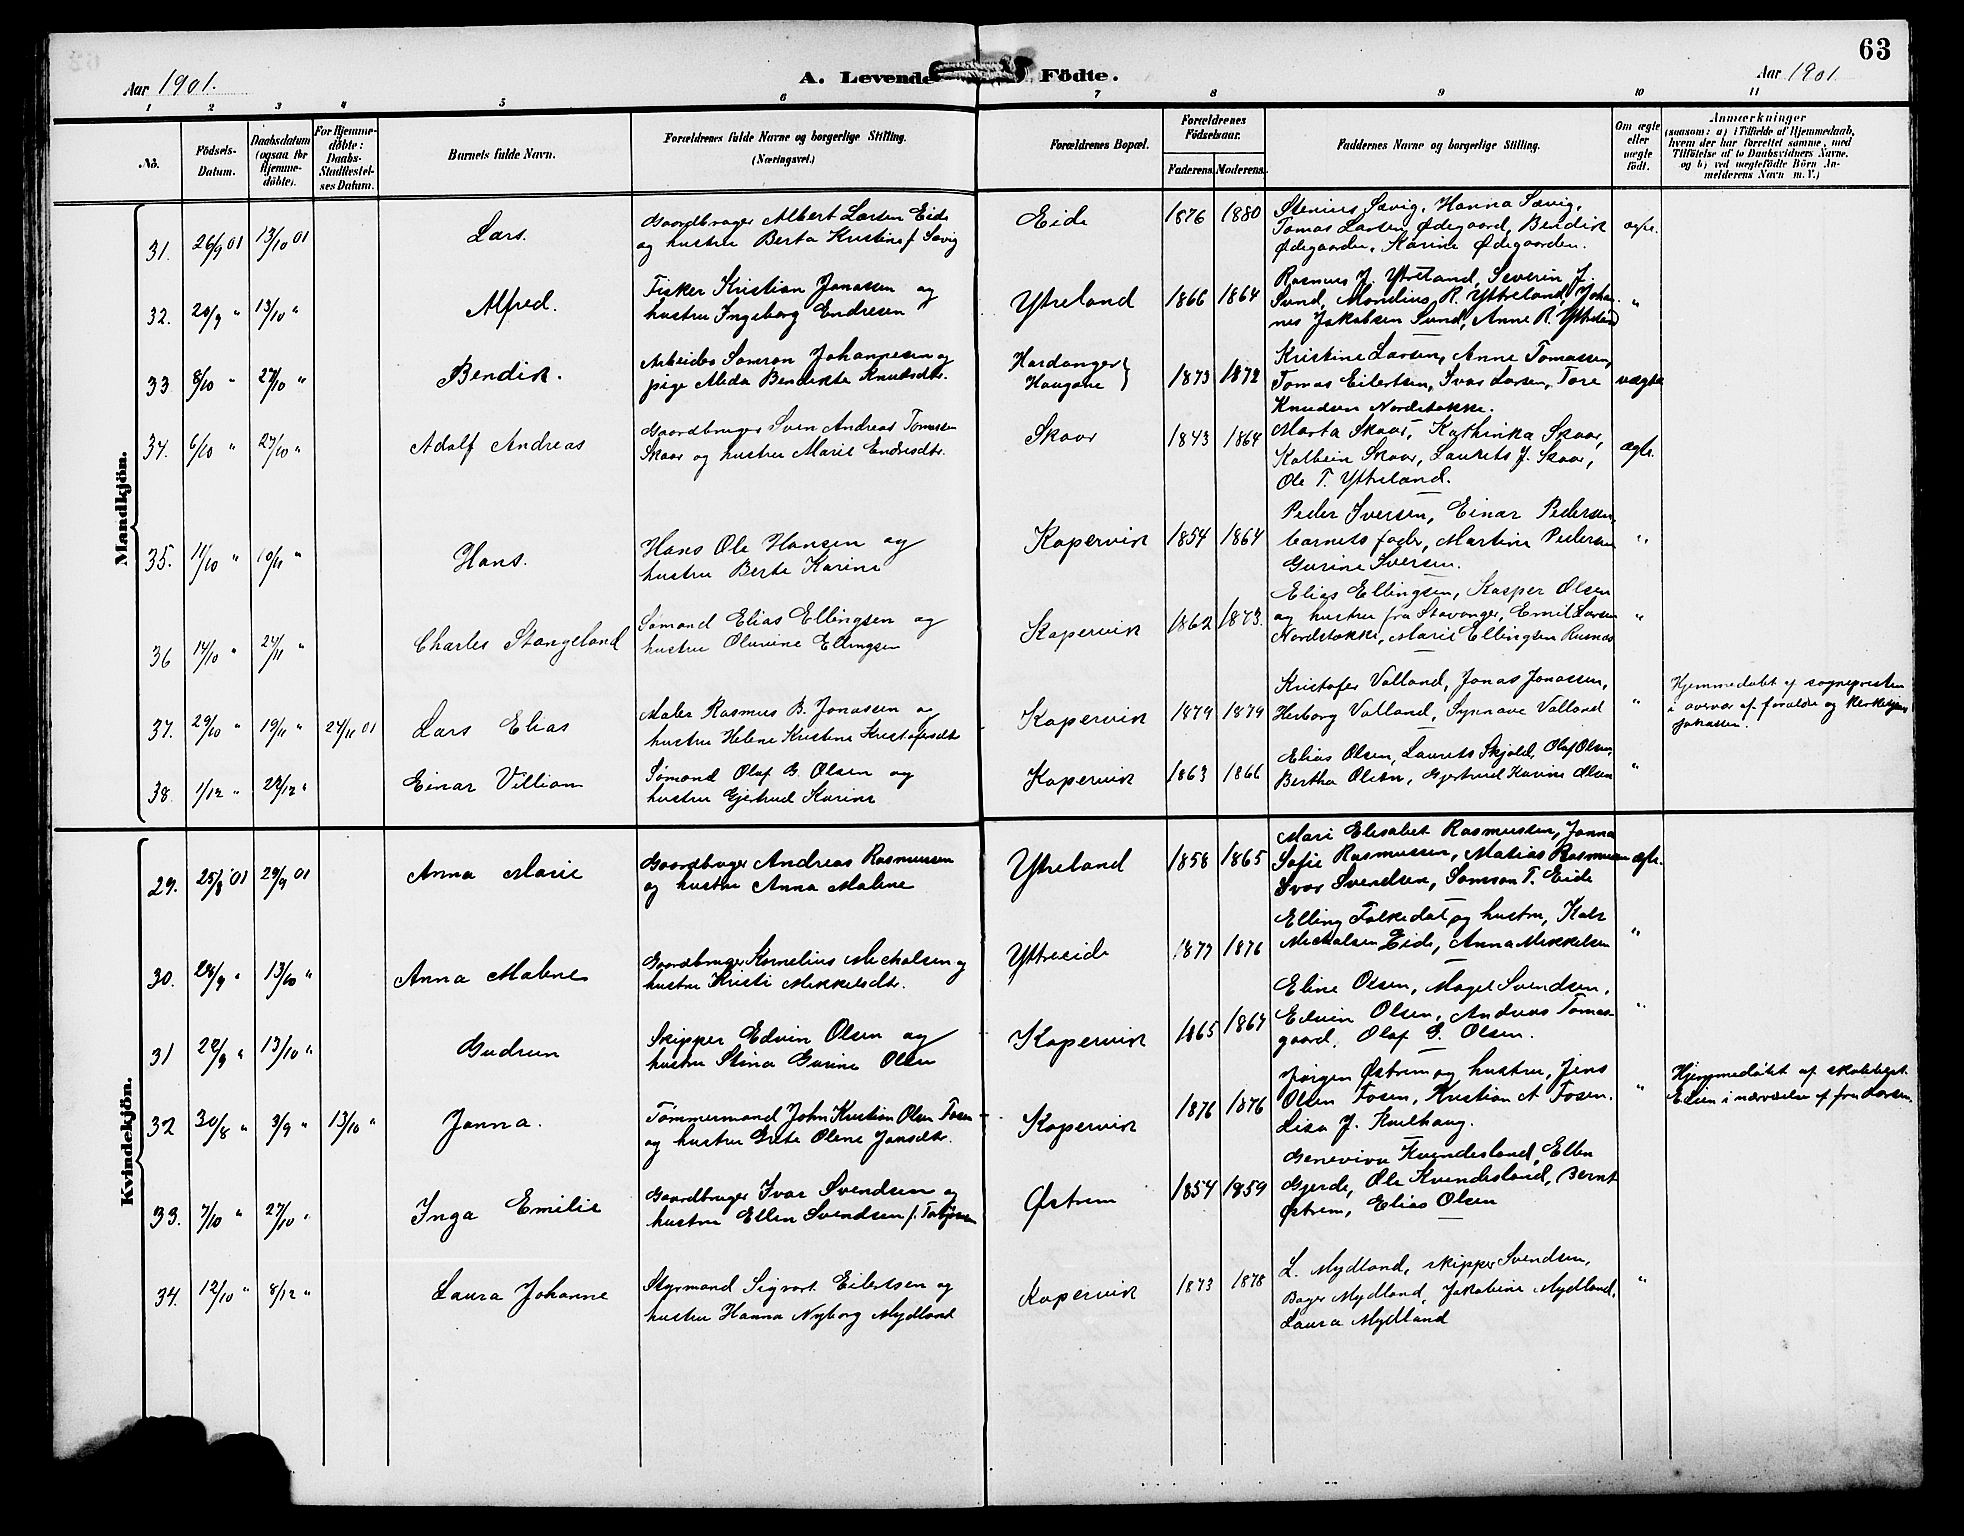 63
Aar 1901.
A. Levende Födte.
Aar 1901
1 2 3 4 5 6 7 8 9 10 11
No.
Födsels-Datum.
Daabsdatum (ogsaa for Hjemme-döbte).
For Hjemme-döbte: Daabs-Stadfestel-ses Datum.
Barnets fulde Navn.
Forældrenes fulde Navne og borgerlige Stilling.
(Næringsvei.)
Forældrenes Bopæl.
Forældrenes Födselsaar.
Faderens. Moderens.
Faddernes Navne og borgerlige Stilling.
Om ægte eller uægte födt.
Anmærkninger
(saasom: a) i Tilfælde af Hjemmedaab,
hvem der har forrettet samme, med
Tilföielse af to Daabsvidners Navne.
og b) ved uegtefödte Börn An-
melderens Navn m. V.)
Mandkjön.
31. 26/9 01 13/10 01 Lars. Gaardbruger Albert Larsen Eide
og hustru Berta Kristine f. Sævig
Eide 1876 1880 Stenius Sævig, Hanna Sævig,
Tomas Larsen Ødegaard, Bendik
Ødegaarden, Karine Ødegaarden.
ægte.
32. 20/9 " 13/10 " Alfred. Fisker Kristian Jonassen og
hustru Ingeborg Endresen
Ytreland 1866 1864 Rasmus J. Ytreland, Severin J.
Sund, Mondius R. Ytreland, Johan-
nes Jakobsen Sund, Anne R. Ytreland
"
33 8/10 " 27/10 " Bendik. Arbeider Samson Johannesen og
pige Alida Bendikte Knutsdtr.
Hardanger
Haugane
1873 1872 Kristine Larsen, Anne Tomassen,
Tomas Eilertsen, Ivar Larsen, Tore
Knudsen Nordstokke.
uægte
34. 6/10 " 27/10 " Adolf Andreas Gaardbruger Sven Andreas Tomassen
Skaar og hustru Marie Endresdtr.
Skaar 1843 1864 Marta Skaar, Kathinka Skaar,
Kolbein Skaar, Laurits J. Skaar,
Ole T. Ytreland.
ægte.
35. 11/10 " 10/11 " Hans. Hans Ole Hansen og
hustru Berte Karine
Kopervik 1854 1864 Peder Iversen, Einar Pedersen,
barnets fader, Martine Pedersen
Gurine Iversen.
"
36 14/10 " 24/11 " Charles Stangeland Sømand Elias Ellingsen og
hustru Oluvine Ellingsen
Kopervik 1862 1873. Elias Ellingsen, Kasper Olsen
og hustru fra Stavanger, Emil Larsen
Nordstokke, Marie Ellingsen Rusnes
"
37. 29/10 " 19/11 " 24/11 01 Lars Elias Maler Rasmus B. Jonassen og
hustru Helene Kristine Kristofersdtr
Kopervik 1879 1879 Kristofer Valland, Jonas Jonassen,
Herborg Valland, Synnøve Valland
"
Hjemmedøbt af sognepresten
i overvær af forældre og
38. 1/12 " 22/12 " Einar Villiam Sømand Olaf G. Olsen og
hustru Gjertrud Karine
Kopervik 1863 1866 Elias Olsen, Laurits Skjold, Olaf Olsen,
Bertha Olsen, Gjertrud Karine Olsen
"
Kvindekjön.
29. 25/8 '01 29/9 01 Anna Marie Gaardbruger Andreas Rasmussen
og hustru Anna Malene
Ytreland 1858 1865 Mari Elisabet Rasmussen, Janna
Sofie Rasmussen, Matias Rasmussen
Ivar Svendsen, Samson T. Eide
ægte.
30. 28/9 " 13/10 " Anna Malene Gaardbruger Kornelius Mickalsen og
hustru Kristi Mikkelsdtr.
Ytreeide 1877 1876 Elling Falkedal og hustru, Kalr
Mickalsen Eide, Anna Mikkelsen
"
31 22/9 " 13/10 " Gudrun Skipper Edvin Olsen og
hustru Stina Gurine Olsen
Kopervik 1865 1867 Eline Olsen, Magel Svendsen,
Edvin Olsen, Andreas Tomas-
gaard, Olaf G. Olsen.
"
32 30/8 " 3/9 " 13/10 " Janna. Tømmermand John Kristian Olsen Fosen
og hustru Grete Oline Jansdtr.
Kopervik 1876 1876 Jørgen Østrem og hustru, Jens
Olsen Fosen, Kristian A Fosen.
Lisa J. Kvilhaug.
"
Hjemmedøbt af skolebest.
Edsen i nærværelse af fru Larsen.
33. 7/10 " 27/10 " Inga Emilie Gaardbruger Ivar Svendsen og
hustru Ellen Svendsen f.
Østrem 1854 1859 Genevive Kvindesland, Ellen
Gjerde, Ole Kvindesland, Bernt
Østrem, Elias Olsen
34. 12/10 " 8/12 " Laura Johanne Styrmand Sigvart Eilertsen og
hustru Hanna Nyborg Mydland
Kopervik 1873 1878 L. Mydland, skipper Svendsen,
Bager Mydland, Jakobine Mydland,
Laura Mydland
"